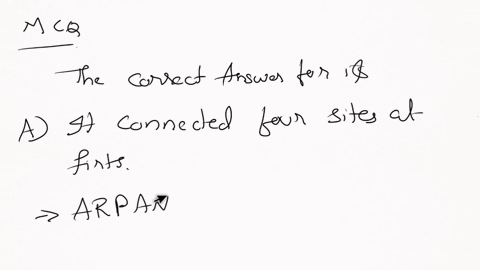 MCQ
The correct Answer for is
A) It connected four sites at
firts.
⇒ ARPAN